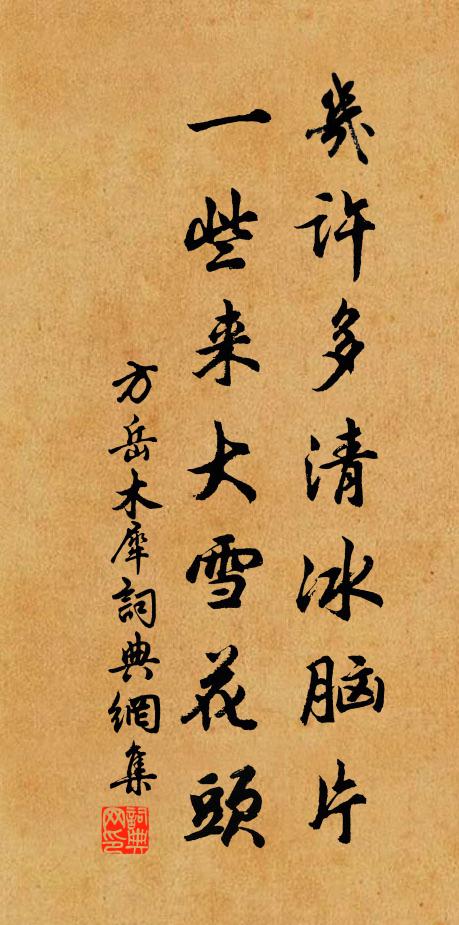 几许多清冰脑片
一些来大雪花頭
方岳木犀詞典網集
詞典网印